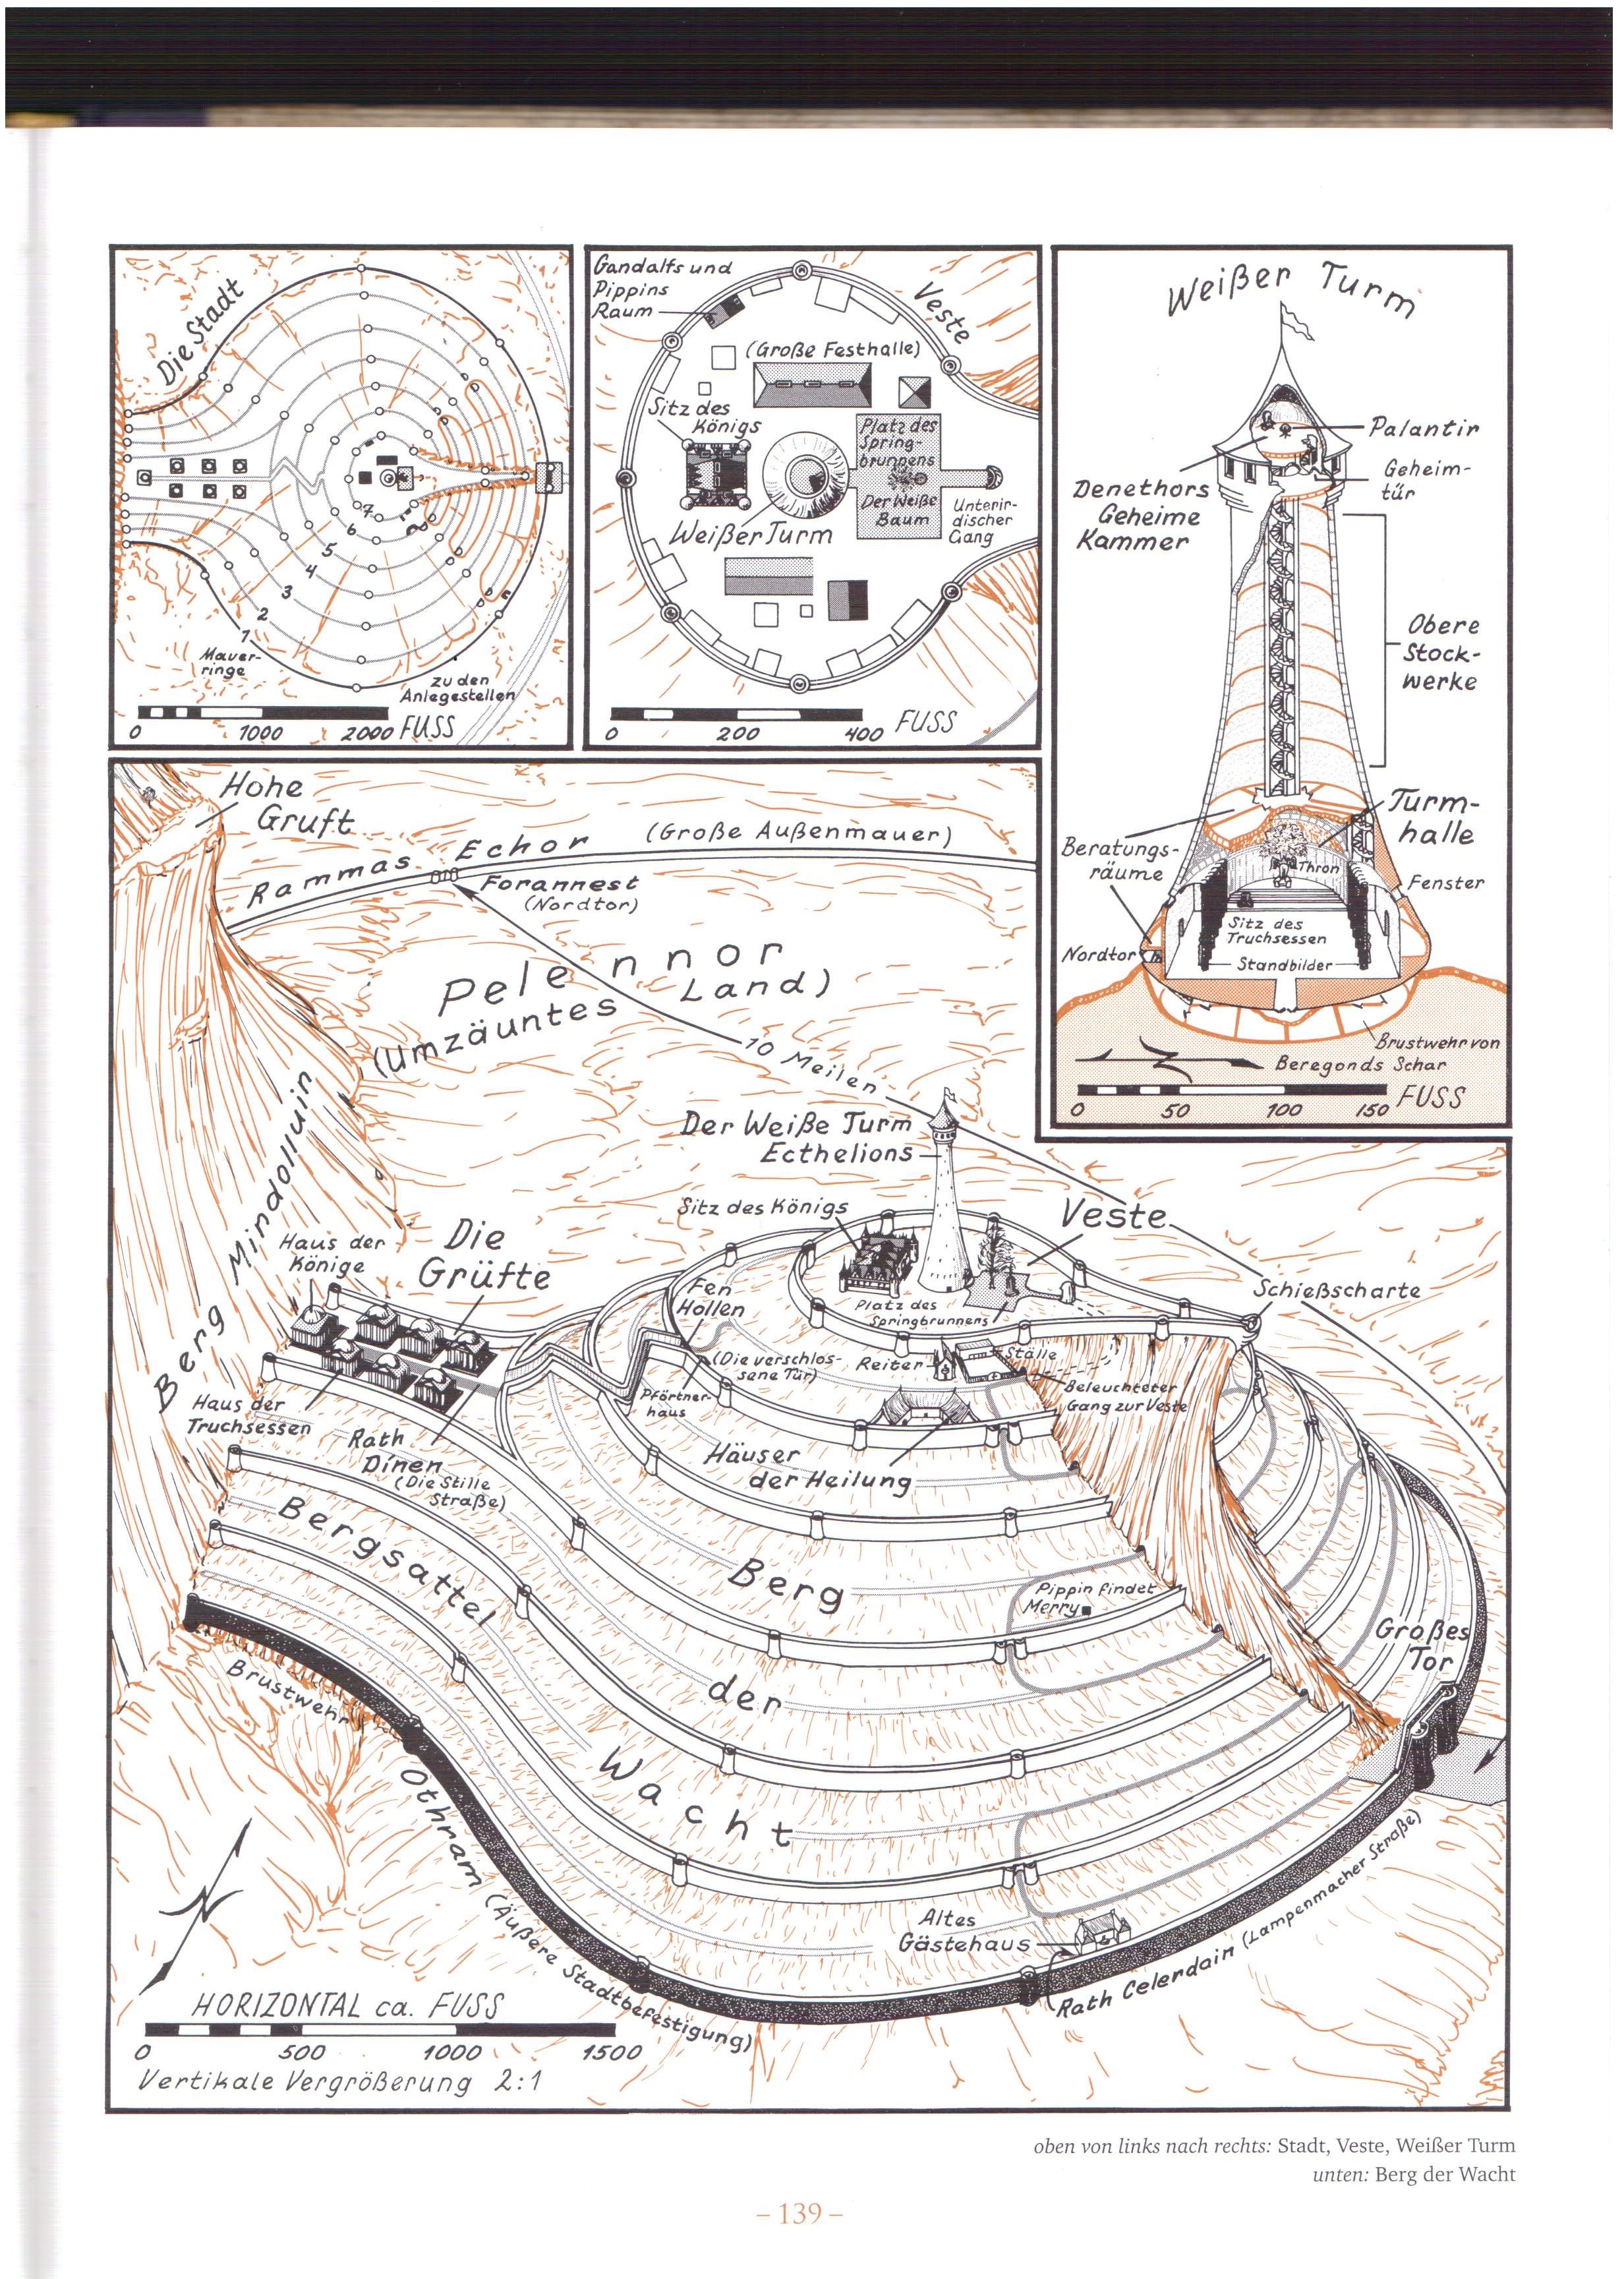 Die Stadt
7
6
5
4
3
2
1
Mauer-
ringe
zu den
Anlegestellen
0 1000 2000 FUSS
Gandalfs und
Pippins
Raum
Veste
(Große Festhalle)
Sitz des
Königs
Platz des
Spring-
brunnens
Der Weiße
Baum
Unterir-
discher
Gang
Weißer Turm
0 200 400 FUSS
Weißer Turm
Palantir
Geheim-
tür
Denethors
Geheime
Kammer
Obere
Stock-
werke
Turm-
halle
Beratungs-
räume
Thron
Fenster
Sitz des
Truchsessen
Nordtor
Standbilder
Brustwehr von
Beregonds Schar
N
0 50 100 150 FUSS
Hohe
Gruft
Rammas Echor (Große Außenmauer)
Forannest
(Nordtor)
Pelennor
(Umzäuntes Land)
10 Meilen
Berg Mindolluin
Der Weiße Turm
Ecthelions
Sitz des Königs
Veste
Haus der
Könige
Die
Grüfte
Fen
Hollen
Platz des
Springbrunnens
Schießscharte
(Die verschlos-
sene Tür)
Reiter
Ställe
Pförtner-
haus
Beleuchteter
Gang zur Veste
Haus der
Truchsessen
Rath
Dínen
(Die Stille
Straße)
Häuser
der Heilung
Bergsattel
Berg
der
Wacht
Pippin findet
Merry
Großes
Tor
Brustwehr
Othram (Äußere Stadtbefestigung)
Altes
Gästehaus
Rath Celerdain (Lampenmacher Straße)
N
HORIZONTAL ca. FUSS
0 500 1000 1500
Vertikale Vergrößerung 2:1
oben von links nach rechts: Stadt, Veste, Weißer Turm
unten: Berg der Wacht
– 139 –